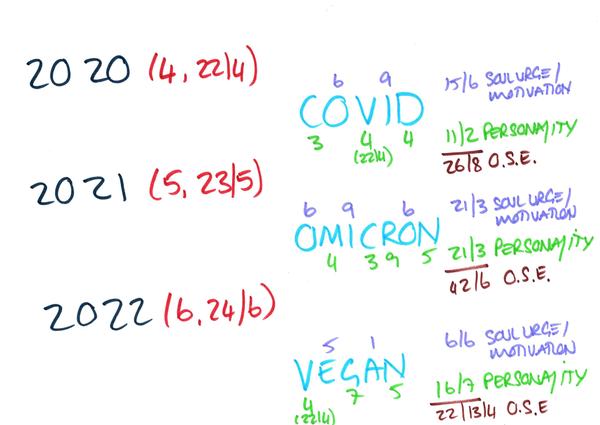 2020 (4, 22/4)
6 9
COVID
3 4 4
(22/4)
15/6 SOUL URGE/
MOTIVATION
11/2 PERSONALITY
26/8 O.S.E.
2021 (5, 23/5)
6 9 6
OMICRON
4 3 9 5
21/3 SOUL URGE/
MOTIVATION
21/3 PERSONALITY
42/6 O.S.E.
2022 (6, 24/6)
5 1
VEGAN
4 7 5
(22/4)
6/6 SOUL URGE/
MOTIVATION
16/7 PERSONALITY
22/13/4 O.S.E